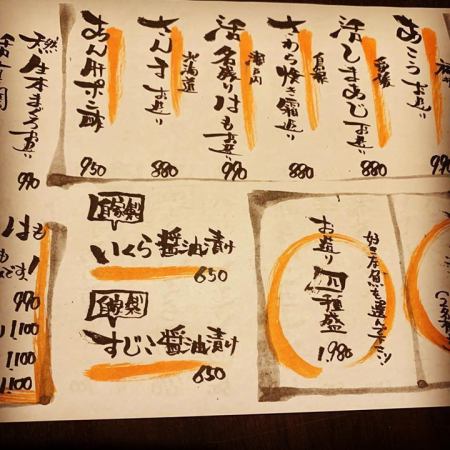 あこうお造り
990
愛媛
活〆しまあじお造り
880
鳥取
さわら焼き霜造り
880
瀬戸内
活〆名残りはもお造り
990
北海道
さんまお造り
880
あん肝ポン酢
750
天然生本まぐろお造り
990
自家製
いくら醤油漬け
650
自家製
すじこ醤油漬け
650
お好きな魚を選んで下さい!
お造り四種盛
1,980
はも
990
1,100
1,100
1,100